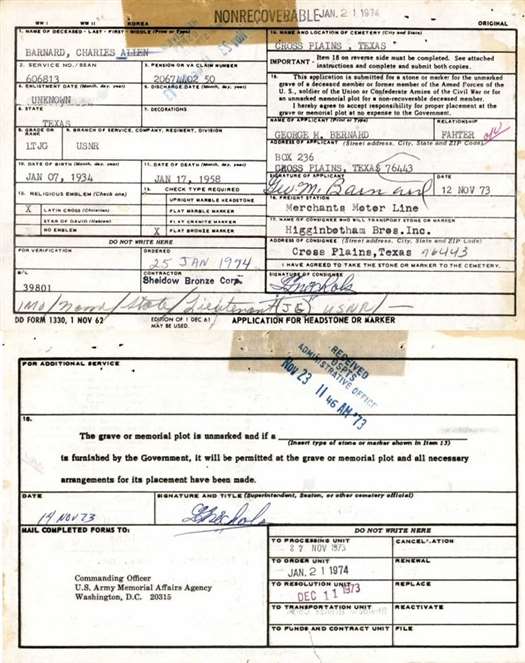 NONRECOVERABLE JAN 21 1974
WW I WW II KOREA ORIGINAL
1. NAME OF DECEASED - LAST - FIRST - MIDDLE (Print or Type)
BARNARD, CHARLES ALLEN
15. NAME AND LOCATION OF CEMETERY (City and State)
CROSS PLAINS, TEXAS
2. SERVICE NO./SSAN
606813
3. PENSION OR VA CLAIM NUMBER
IMPORTANT - Item 18 on reverse side must be completed. See attached instructions and complete and submit both copies.
4. ENLISTMENT DATE (Month, day, year)
UNKNOWN
5. DISCHARGE DATE (Month, day, year)
This application is submitted for a stone or marker for the unmarked
grave of a deceased member or former member of the Armed Forces of the
U.S., soldier of the Union or Confederate Armies of the Civil War or for
an unmarked memorial plot for a non-recoverable deceased member.
I hereby agree to accept responsibility for proper placement at the
grave or memorial plot at no expense to the Government.
6. STATE
TEXAS
7. DECORATIONS
NAME OF APPLICANT (Print or Type) RELATIONSHIP
GEORGE M. BERNARD FAHTER
8. GRADE OR RANK
LTJG
9. BRANCH OF SERVICE, COMPANY, REGIMENT, DIVISION
USNR
ADDRESS OF APPLICANT (Street address, City, State and ZIP Code)
BOX 236
CROSS PLAINS, TEXAS 76443
10. DATE OF BIRTH (Month, day, year)
JAN 07, 1934
11. DATE OF DEATH (Month, day, year)
JAN 17, 1958
SIGNATURE OF APPLICANT DATE
Geo. M. Barnard 12 NOV 73
12. RELIGIOUS EMBLEM (Check one)
X LATIN CROSS (Christian)
STAR OF DAVID (Hebrew)
NO EMBLEM
13. CHECK TYPE REQUIRED
UPRIGHT MARBLE HEADSTONE
FLAT MARBLE MARKER
FLAT GRANITE MARKER
X FLAT BRONZE MARKER
16. FREIGHT STATION
Merchants Moter Line
17. NAME OF CONSIGNEE WHO WILL TRANSPORT STONE OR MARKER
Higginbetham Bros.Inc.
DO NOT WRITE HERE
ADDRESS OF CONSIGNEE (Street address, City, State and ZIP Code)
Cross Plains,Texas 76443
FOR VERIFICATION
ORDERED
25 JAN 1974
I HAVE AGREED TO TAKE THE STONE OR MARKER TO THE CEMETERY.
B/L
39801
CONTRACTOR
Sheidow Bronze Corp.
SIGNATURE OF CONSIGNEE
1Mo/Name/State/Lieutenant (JG) USNR/
DD FORM 1330, 1 NOV 62 EDITION OF 1 DEC 61 MAY BE USED. APPLICATION FOR HEADSTONE OR MARKER
FOR ADDITIONAL SERVICE
RECEIVED
USPTS
ADMINISTRATIVE OFFICE
NOV 23 11 46 AM '73
18.
The grave or memorial plot is unmarked and if a
(Insert type of stone or marker shown in Item 13)
is furnished by the Government, it will be permitted at the grave or memorial plot and all necessary
arrangements for its placement have been made.
DATE
14 NOV 73
SIGNATURE AND TITLE (Superintendent, Sexton, or other cemetery official)
MAIL COMPLETED FORMS TO:
Commanding Officer
U.S. Army Memorial Affairs Agency
Washington, D.C. 20315
DO NOT WRITE HERE
TO PROCESSING UNIT CANCELLATION
27 NOV 1973
TO ORDER UNIT RENEWAL
JAN 21 1974
TO RESOLUTION UNIT REPLACE
DEC 11 1973
TO TRANSPORTATION UNIT REACTIVATE
TO FUNDS AND CONTRACT UNIT FILE